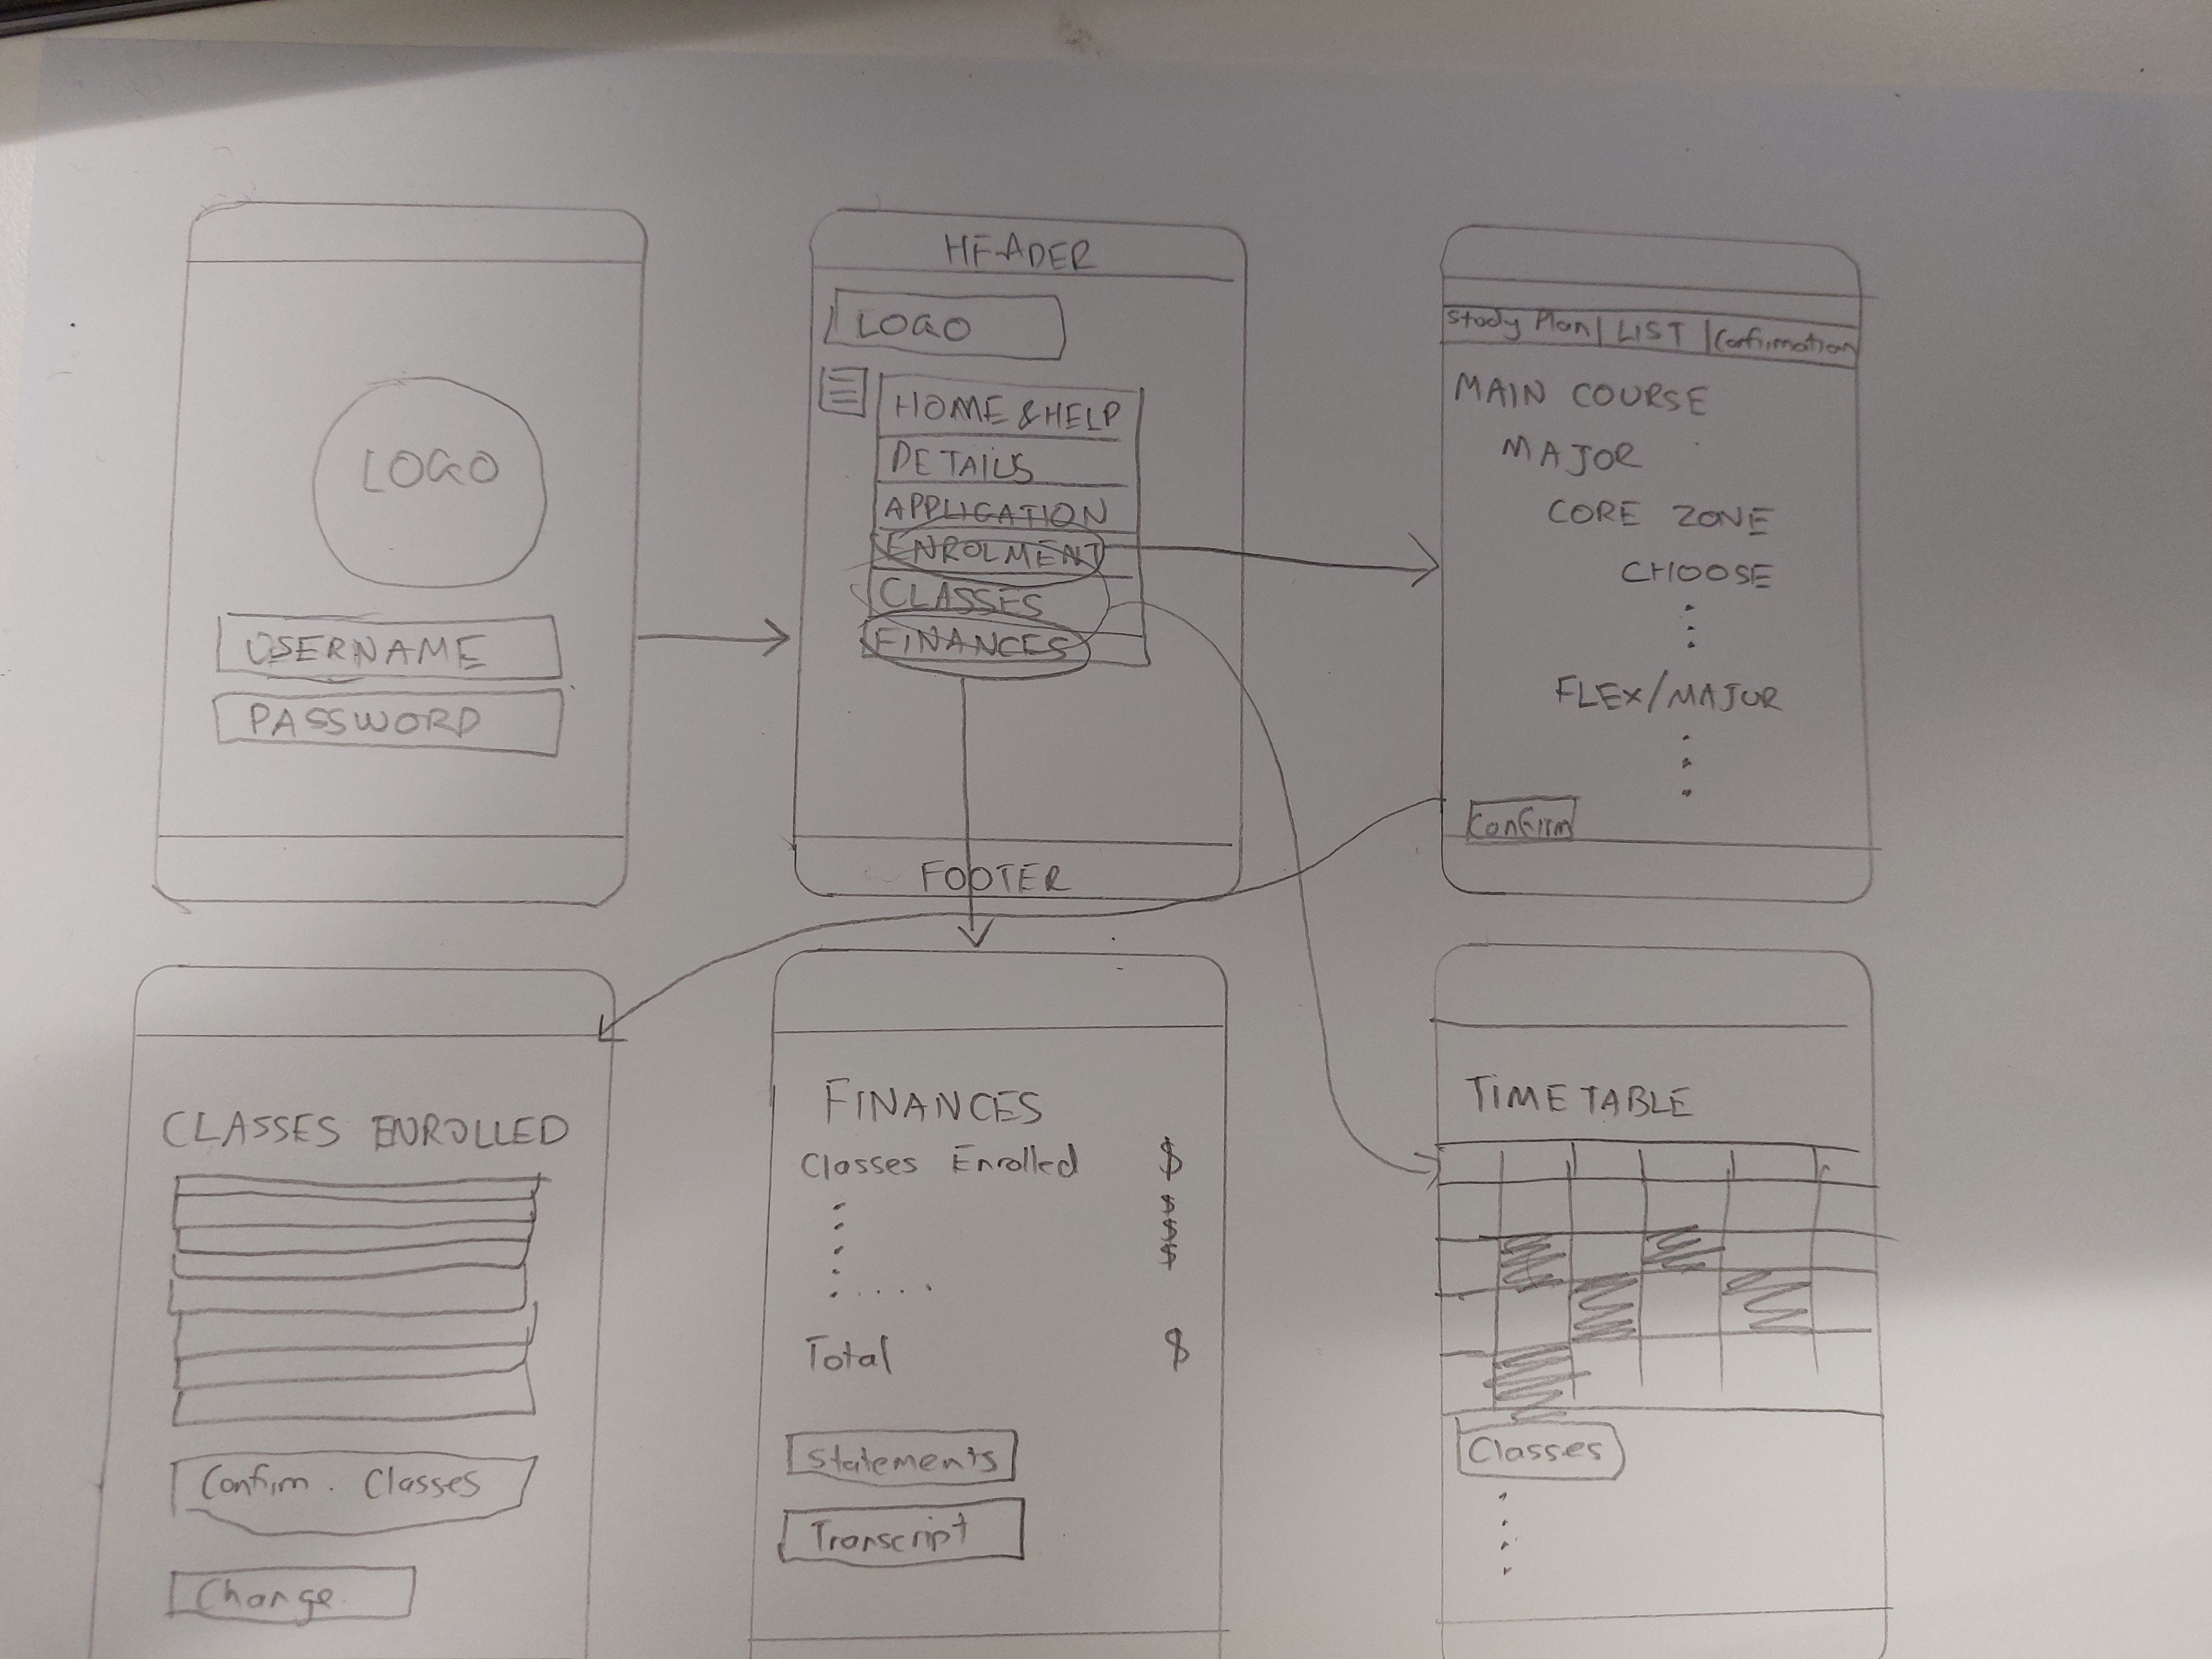 LOGO
USERNAME
PASSWORD
HEADER
LOGO
HOME & HELP
DETAILS
APPLICATION
ENROLMENT
CLASSES
FINANCES
FOOTER
Study Plan | LIST | Confirmation
MAIN COURSE
MAJOR
CORE ZONE
CHOOSE
FLEX/MAJOR
Confirm
CLASSES ENROLLED
Confirm. Classes
Change
FINANCES
Classes Enrolled $
$
$
$
Total $
Statements
Transcript
TIMETABLE
Classes